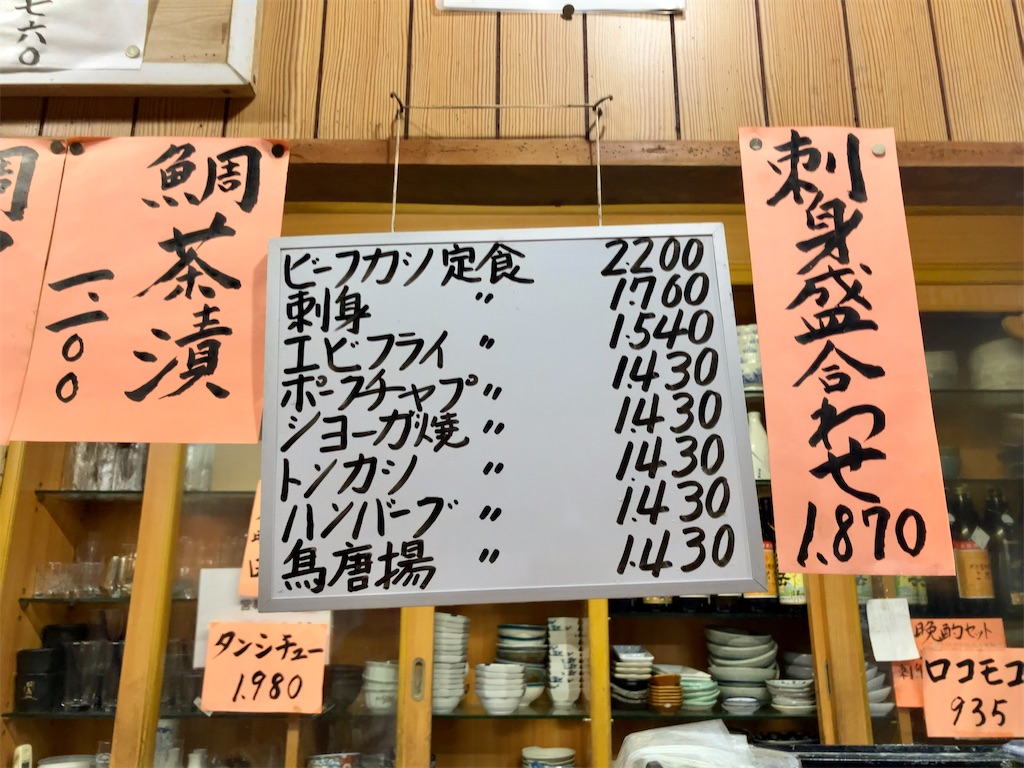 七六〇
鯛茶漬
一.一〇〇
ビーフカツ定食 2.200
刺身 〃 1.760
エビフライ 〃 1.540
ポークチャップ 〃 1.430
ショーガ焼 〃 1.430
トンカツ 〃 1.430
ハンバーグ 〃 1.430
鳥唐揚 〃 1.430
刺身盛合わせ
1.870
タンシチュー
1.980
晩酌セット
ロコモコ
935